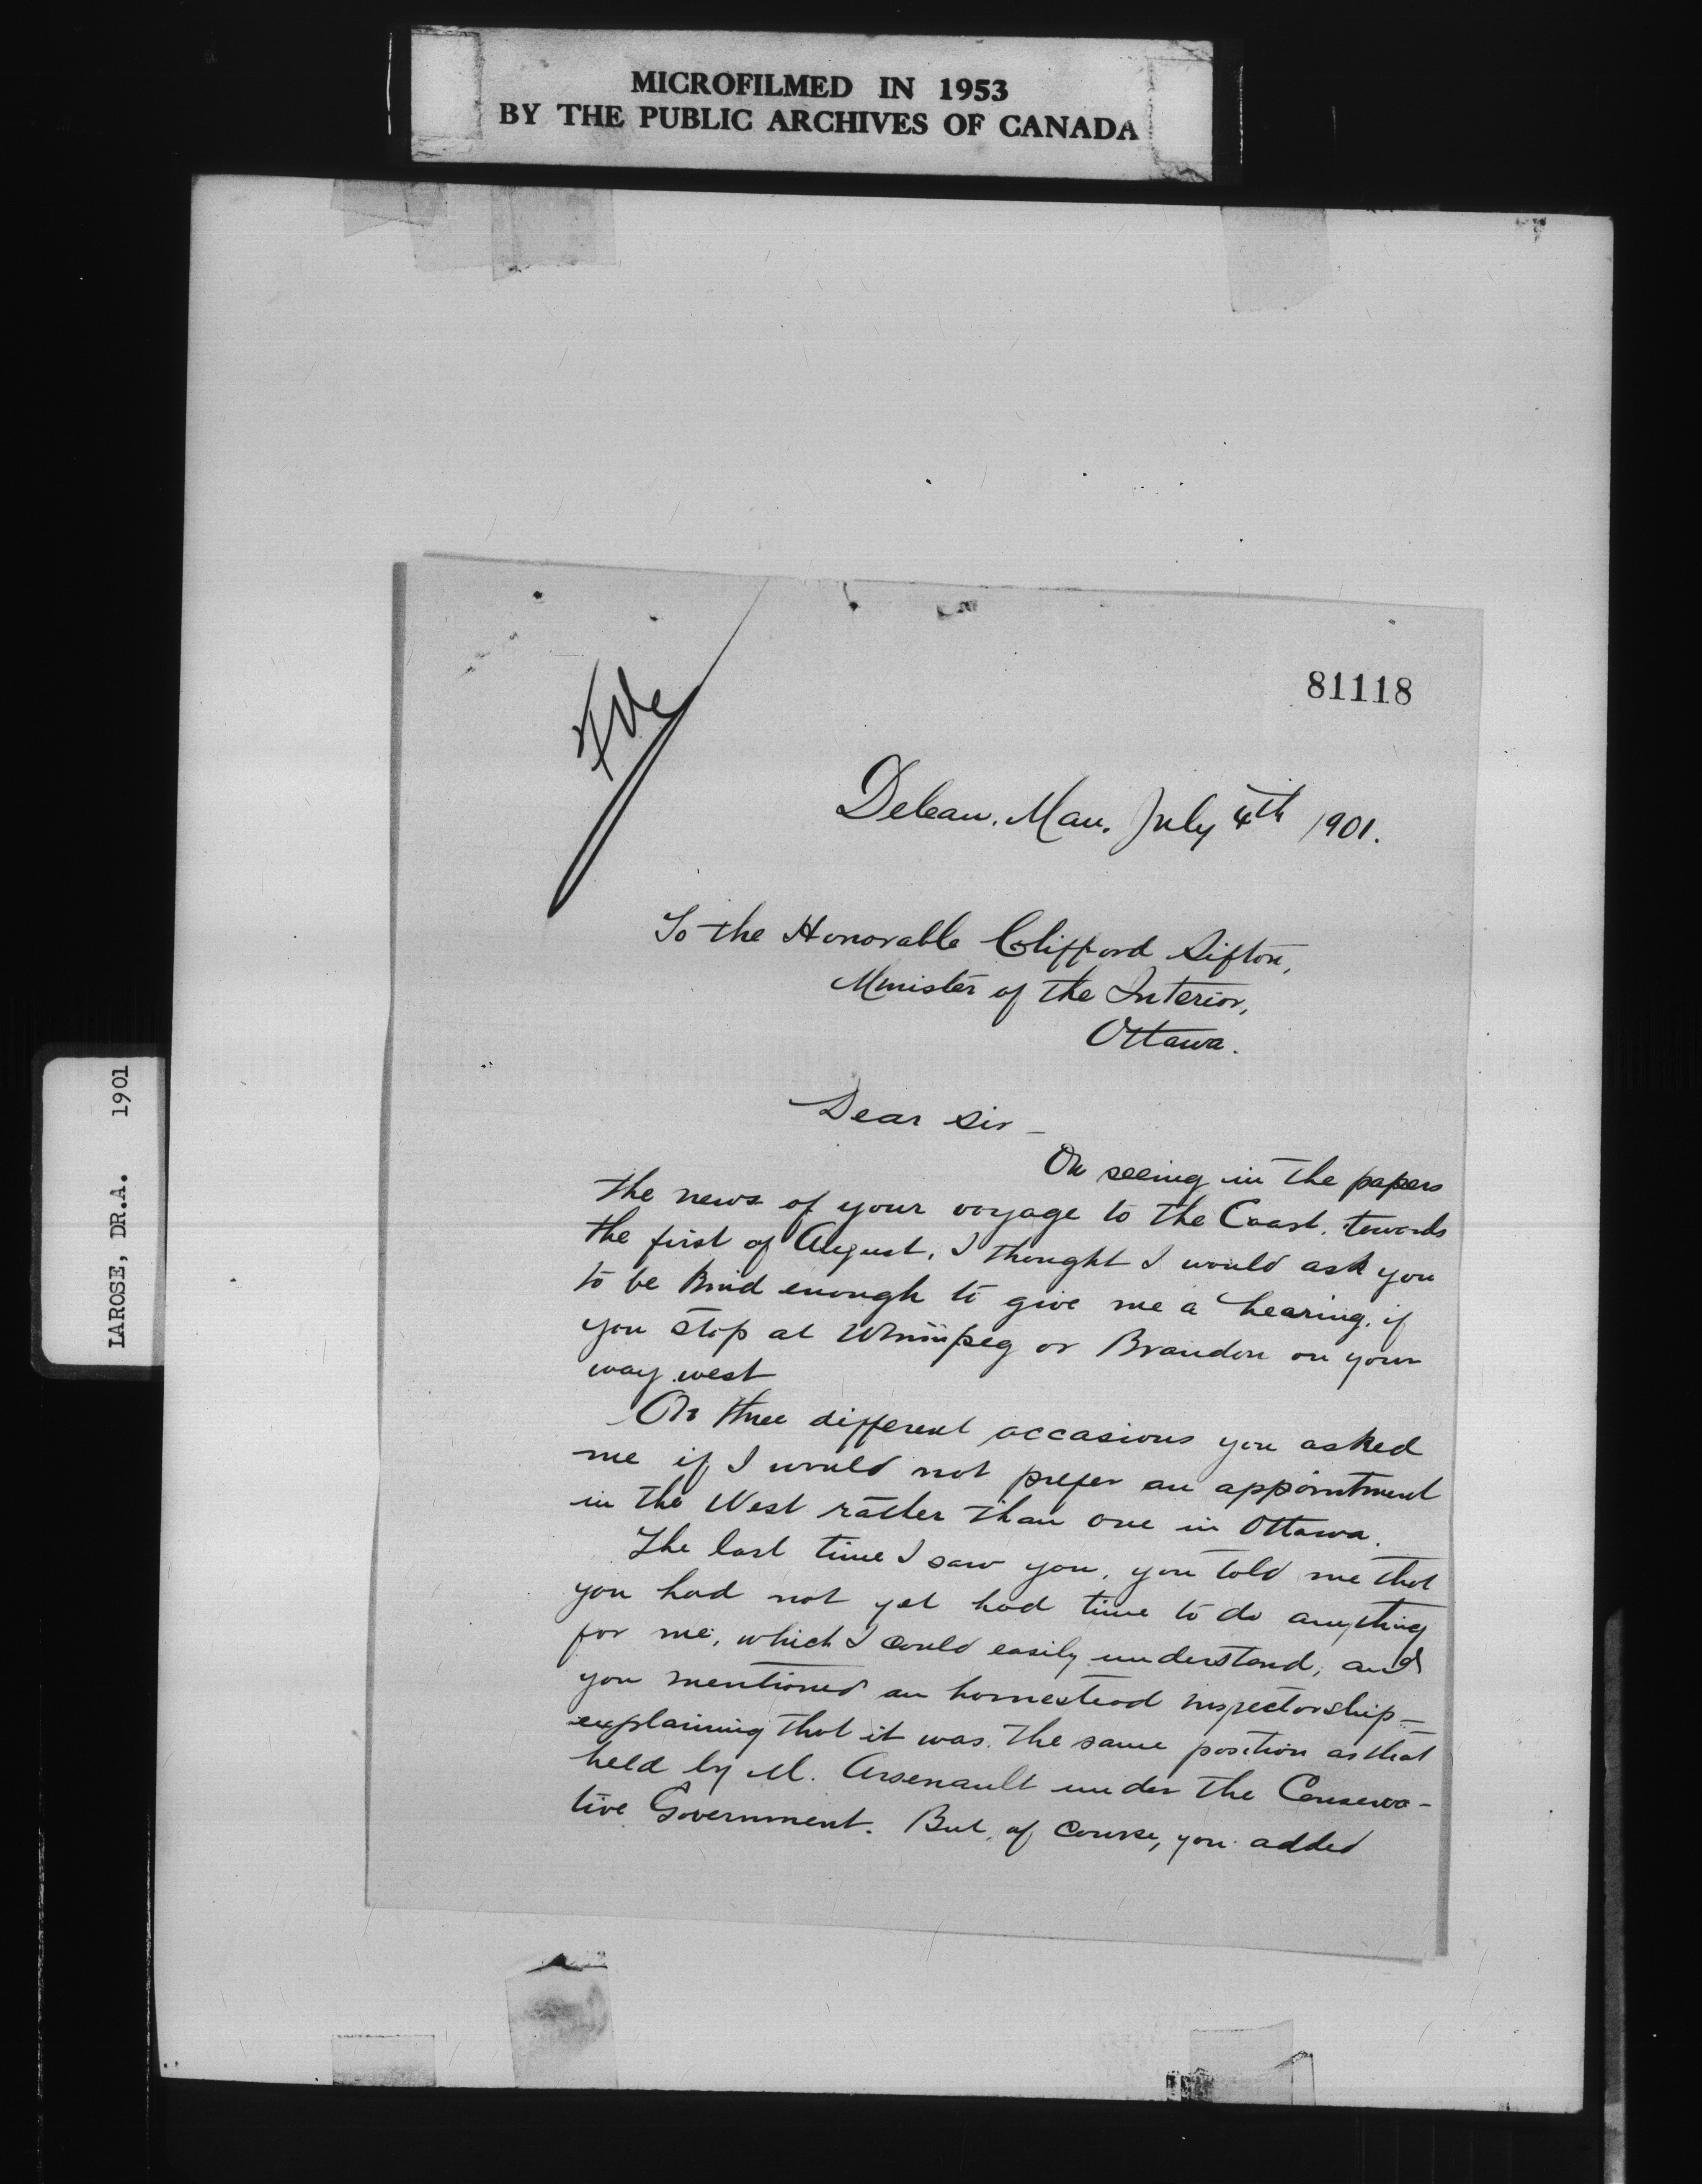 MICROFILMED IN 1953
BY THE PUBLIC ARCHIVES OF CANADA
LAROSE, DR.A. 1901
File
81118
Deleau, Man. July 4th 1901.
To the Honorable Clifford Sifton,
Minister of the Interior,
Ottawa.
Dear Sir –
On seeing in the papers
the news of your voyage to the Coast, towards
the first of August, I thought I would ask you
to be kind enough to give me a hearing, if
you stop at Winnipeg or Brandon on your
way west
On three different occasions you asked
me if I would not prefer an appointment
in the West rather than one in Ottawa.
The last time I saw you, you told me that
you had not yet had time to do anything
for me, which I could easily understand, and
you mentioned an homestead inspectorship –
explaining that it was the same position as that
held by M. Arsenault under the Conserva-
tive Government. But, of course, you added